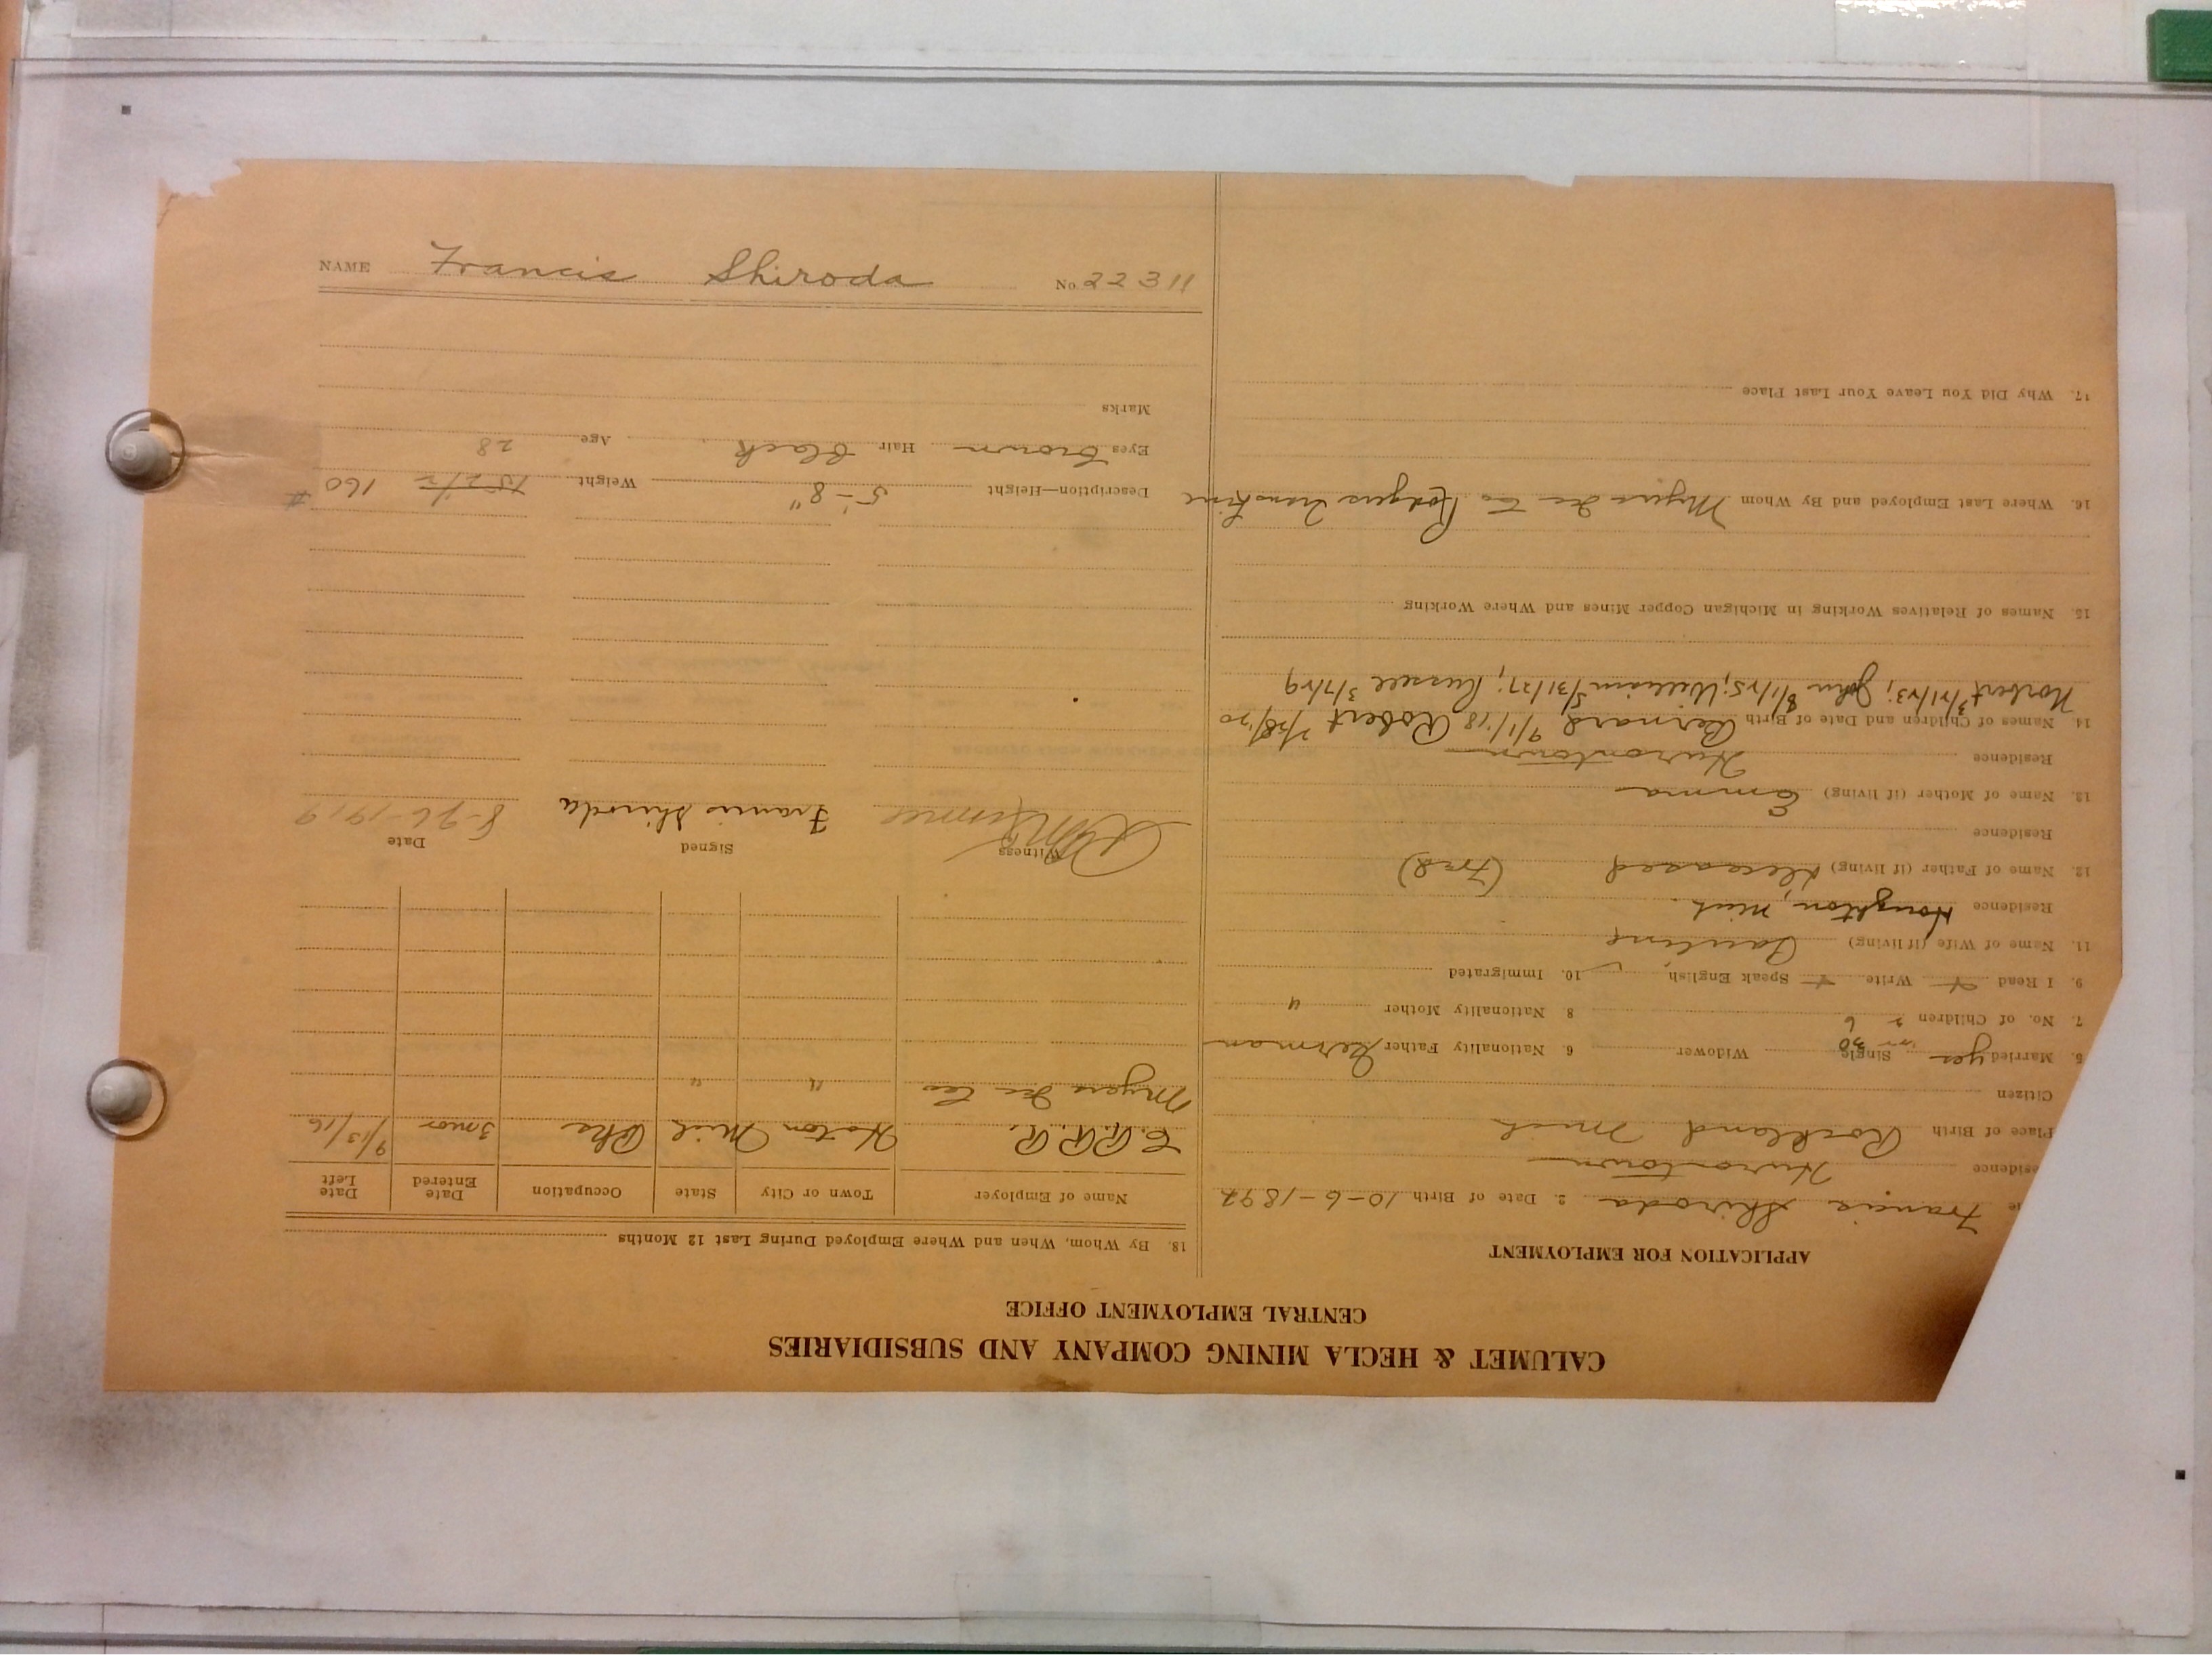 CALUMET & HECLA MINING COMPANY AND SUBSIDIARIES
CENTRAL EMPLOYMENT OFFICE
APPLICATION FOR EMPLOYMENT
Francis Shiroda 2. Date of Birth 10-6-1892
esidence Hurontown
Place of Birth Rockland Mich
Citizen
5. Married yes Single Widower 6. Nationality Father German
7. No. of Children 2 6 8 Nationality Mother "
9. I Read Write Speak English 10. Immigrated
11. Name of Wife (if living) Pauline
Residence Houghton, Mich.
12. Name of Father (if living) Deceased (Fred)
Residence
13. Name of Mother (if living) Emma
Residence Hurontown
14. Names of Children and Date of Birth Bernard 9/1/18 Robert 7/28/20
Norbert 3/21/23; John 8/1/25; William 5/31/27; Russell 3/7/29
15. Names of Relatives Working in Michigan Copper Mines and Where Working
16. Where Last Employed and By Whom Myers Ice Co
17. Why Did You Leave Your Last Place
18. By Whom, When and Where Employed During Last 12 Months
Name of Employer Town or City State Occupation Date Entered Date Left
C.R.R.R. Hoton Mich 3 mos 9/15/16
Myers Ice Co " "
Witness Signed Date
Francis Shiroda 8-26-1919
Description—Height 5'-8" Weight 152 1/2 160 #
Eyes Brown Hair Black Age 28
Marks
NAME Francis Shiroda No. 22311